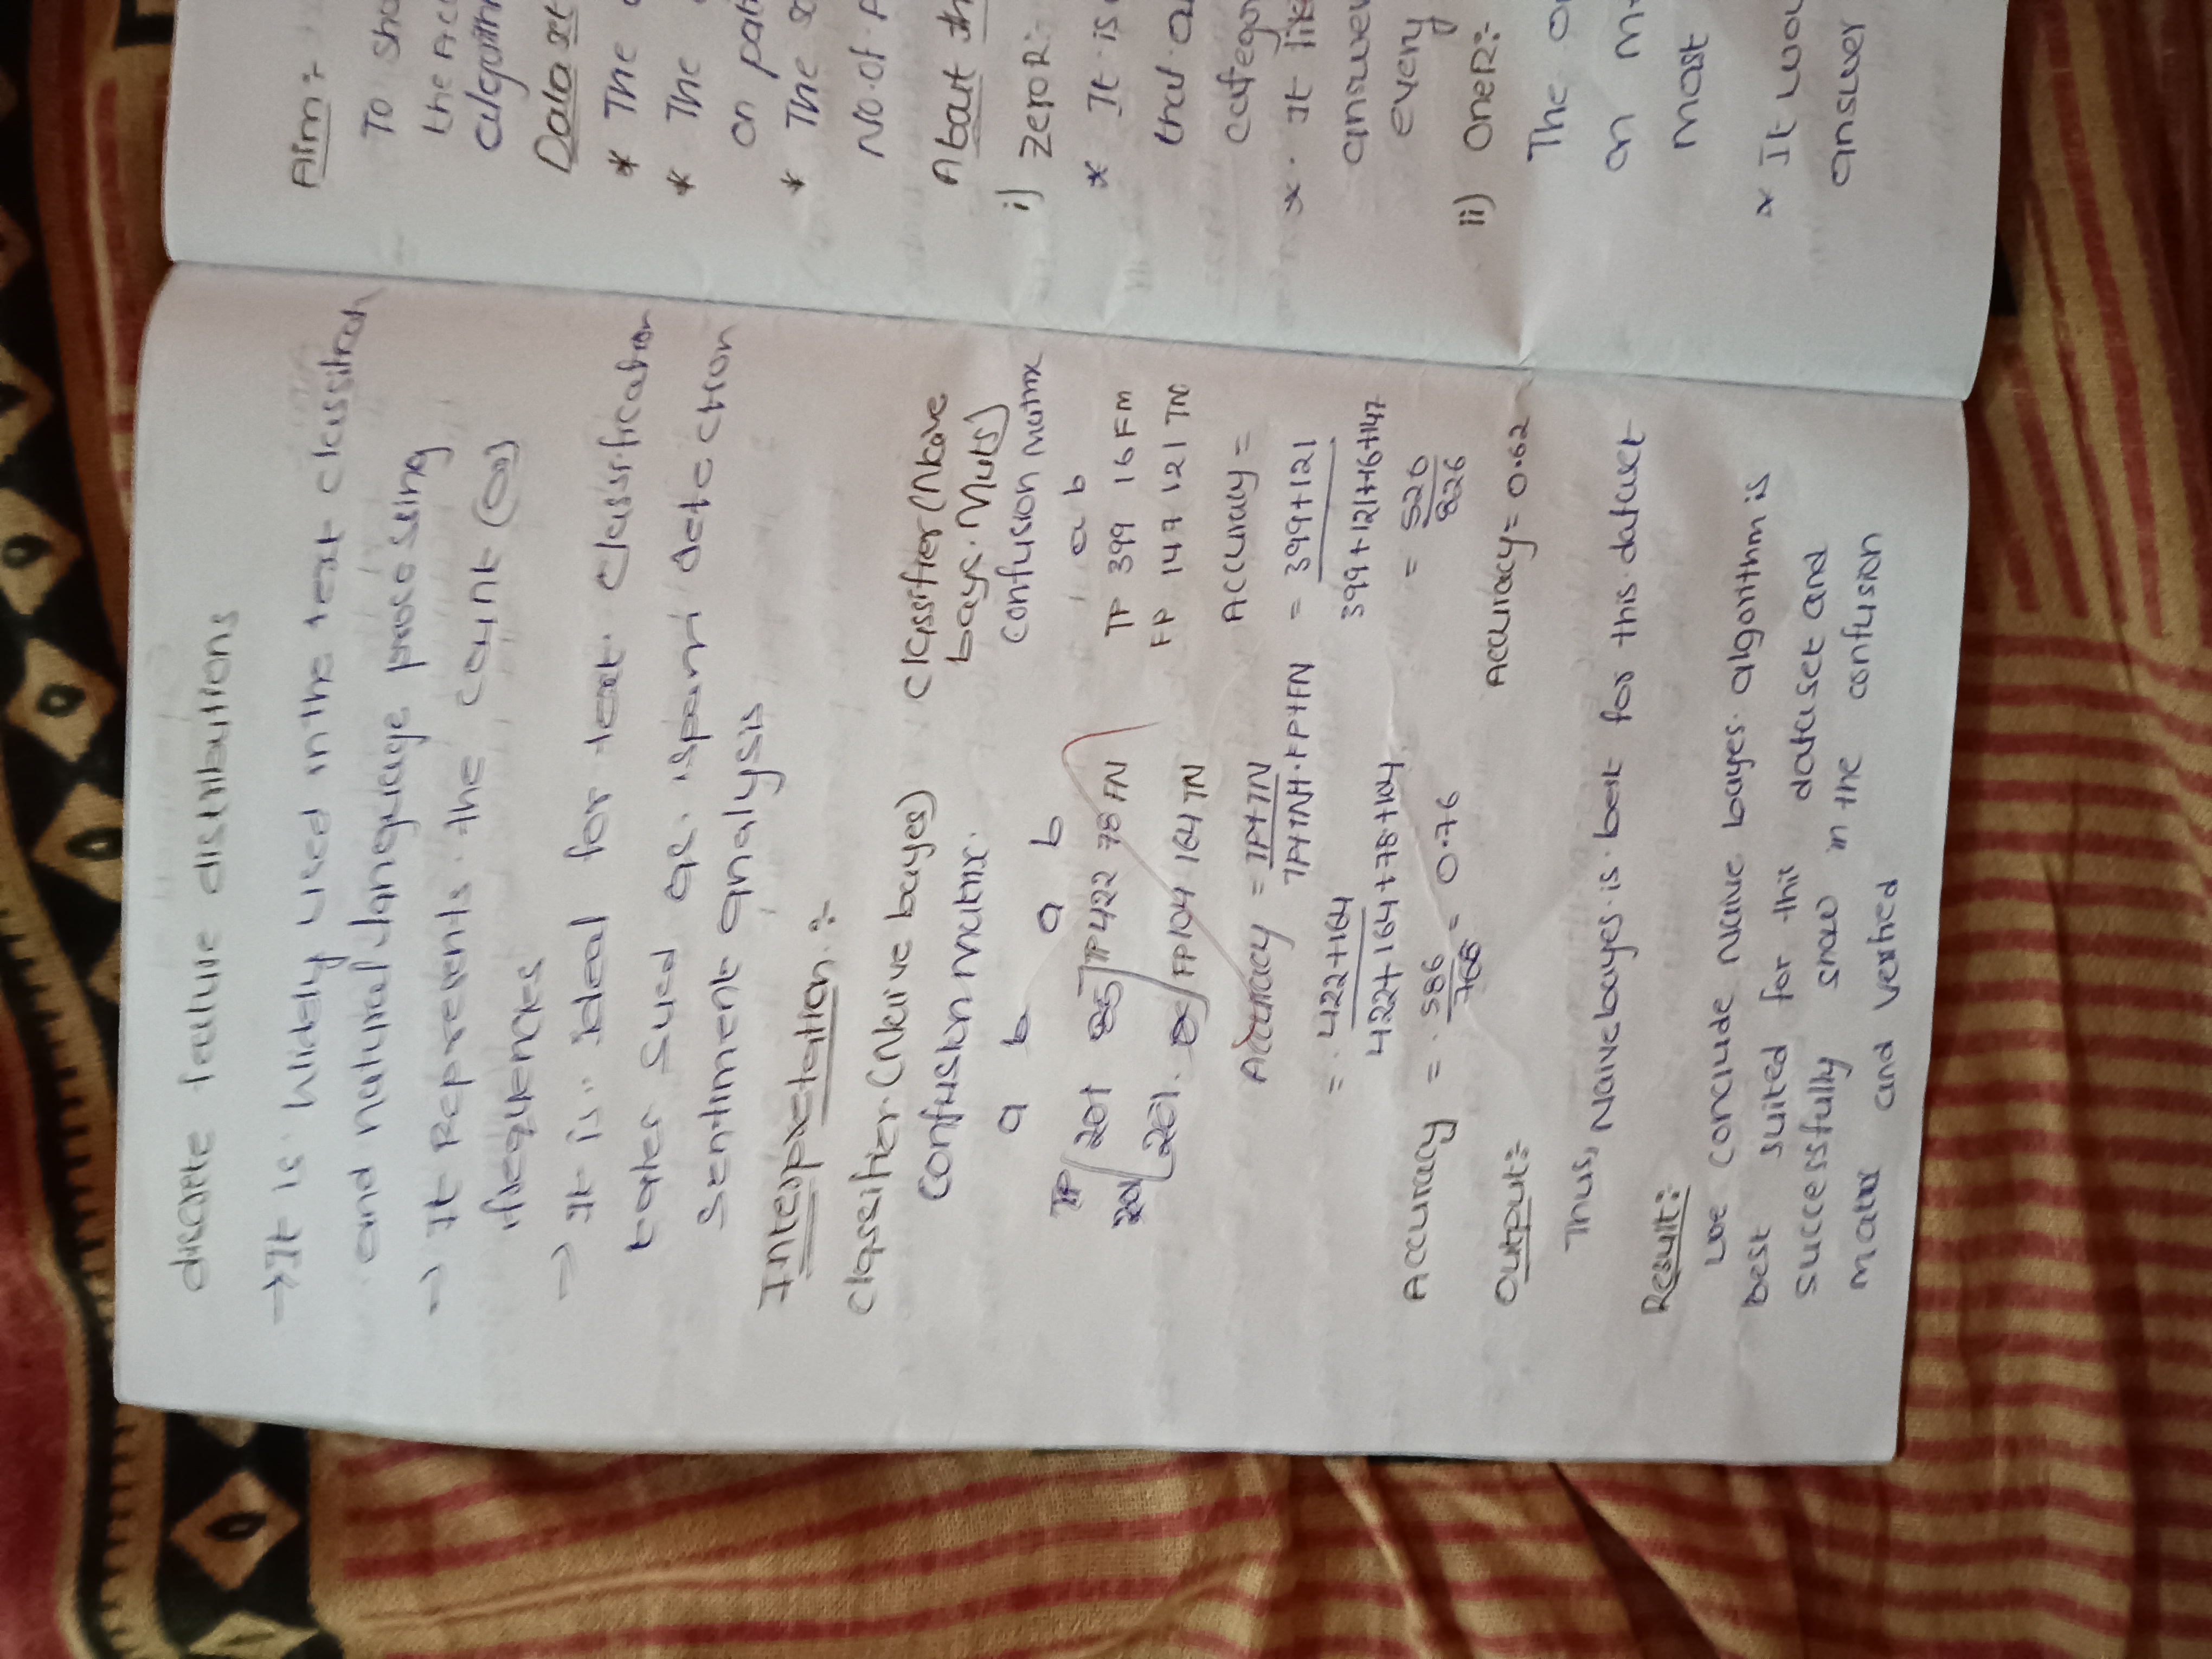 discrete feature distributions
→ It is Widely used in the text classification
and natural language processing
→ It Represents the count (or)
frequencies
→ It is ideal for text classification
sued as spam detection
sentiment analysis
Interpretation :-
Classifier (Naive bayes)
Confusion matrix.
a b
a b
TP 201 85 TP 422 78 FN
201 201. FP 104 164 TN
Accuracy = TP+TN
TP+TN+FP+FN
= 422+164
422+164+78+104
Accuracy = 586 = 0.76
766
Classifier (Naive
bays. Muts)
Confusion Matrix
a b
TP 399 16 FM
FP 147 121 TN
Accuracy =
= 399+121
399+121+16+147
= 520
826
Accuracy = 0.62
Output:-
Thus, Naivebayes is best for this dataset
Result:-
we conclude Naive bayes algorithm is
best suited for this dataset and
successfully show in the confusion
and verified
Aim :-
To sho
the Acc
algorith
Data set
* The
* The
on pat
* The so
No. of A
About th
i) ZeroR:-
* It is
that a
catego
* It lik
answer
every
ii) OneR:-
The o
on
most
* It wou
answer